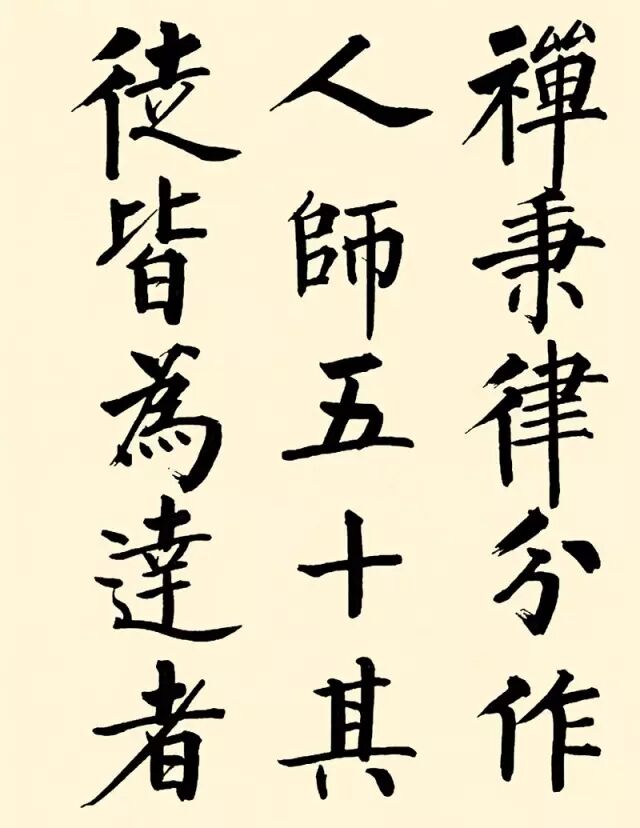 禪秉律分作
人師五十其
徒皆為達者